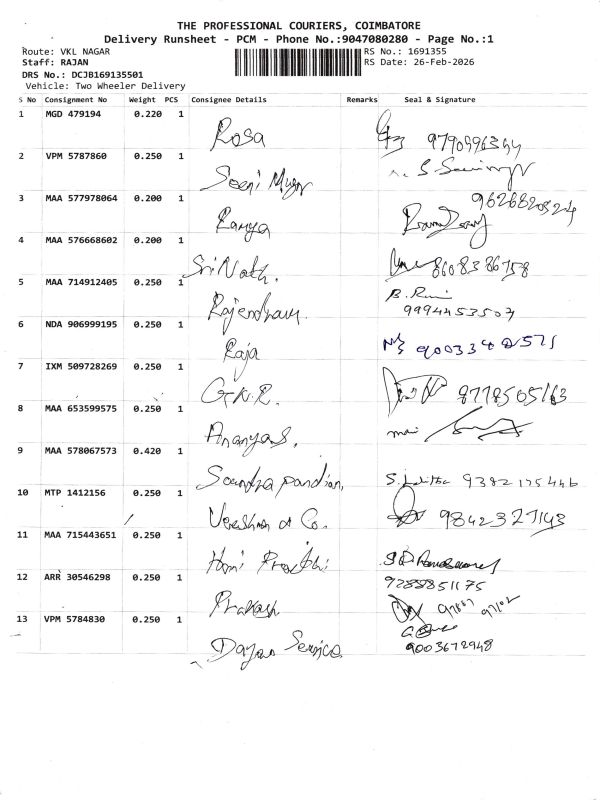 THE PROFESSIONAL COURIERS, COIMBATORE
Delivery Runsheet - PCM - Phone No.:9047080280 - Page No.:1
Route: VKL NAGAR RS No.: 1691355
Staff: RAJAN RS Date: 26-Feb-2026
DRS No.: DCJB169135501
Vehicle: Two Wheeler Delivery
S No Consignment No Weight PCS Consignee Details Remarks Seal & Signature
1 MGD 479194 0.220 1
Rosa
2 VPM 5787860 0.250 1
Seeni
3 MAA 577978064 0.200 1
Ramya
4 MAA 576668602 0.200 1
Sri Nath. 8608386758
5 MAA 714912405 0.250 1
Rajendran. 9994453507
6 NDA 906999195 0.250 1
Raja
7 IXM 509728269 0.250 1
G.K.R. 8778505163
8 MAA 653599575 0.250 1
Ananya S.
9 MAA 578067573 0.420 1
Soundra pandian, S. Lalitha 9382175446
10 MTP 1412156 0.250 1
& Co. 9842327143
11 MAA 715443651 0.250 1
Hari
12 ARR 30546298 0.250 1 9288851175
Prakash
13 VPM 5784830 0.250 1
Service. 9003672948